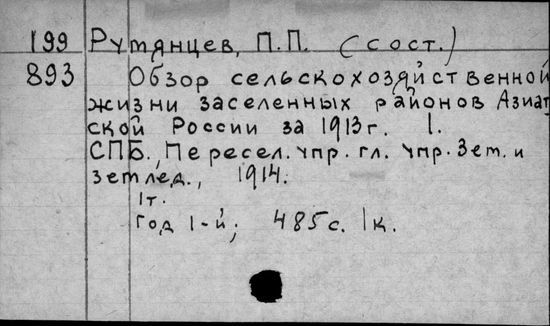 199 Румянцев, П.П. (сост.)
893 Обзор сельскохозяйственной
жизни заселенных районов Азиат
ской России за 1913 г. 1.
СПБ., Пересел. упр. гл. упр. Зем. и
землед., 1914.
1т.
Год 1-й; 485 с. 1к.